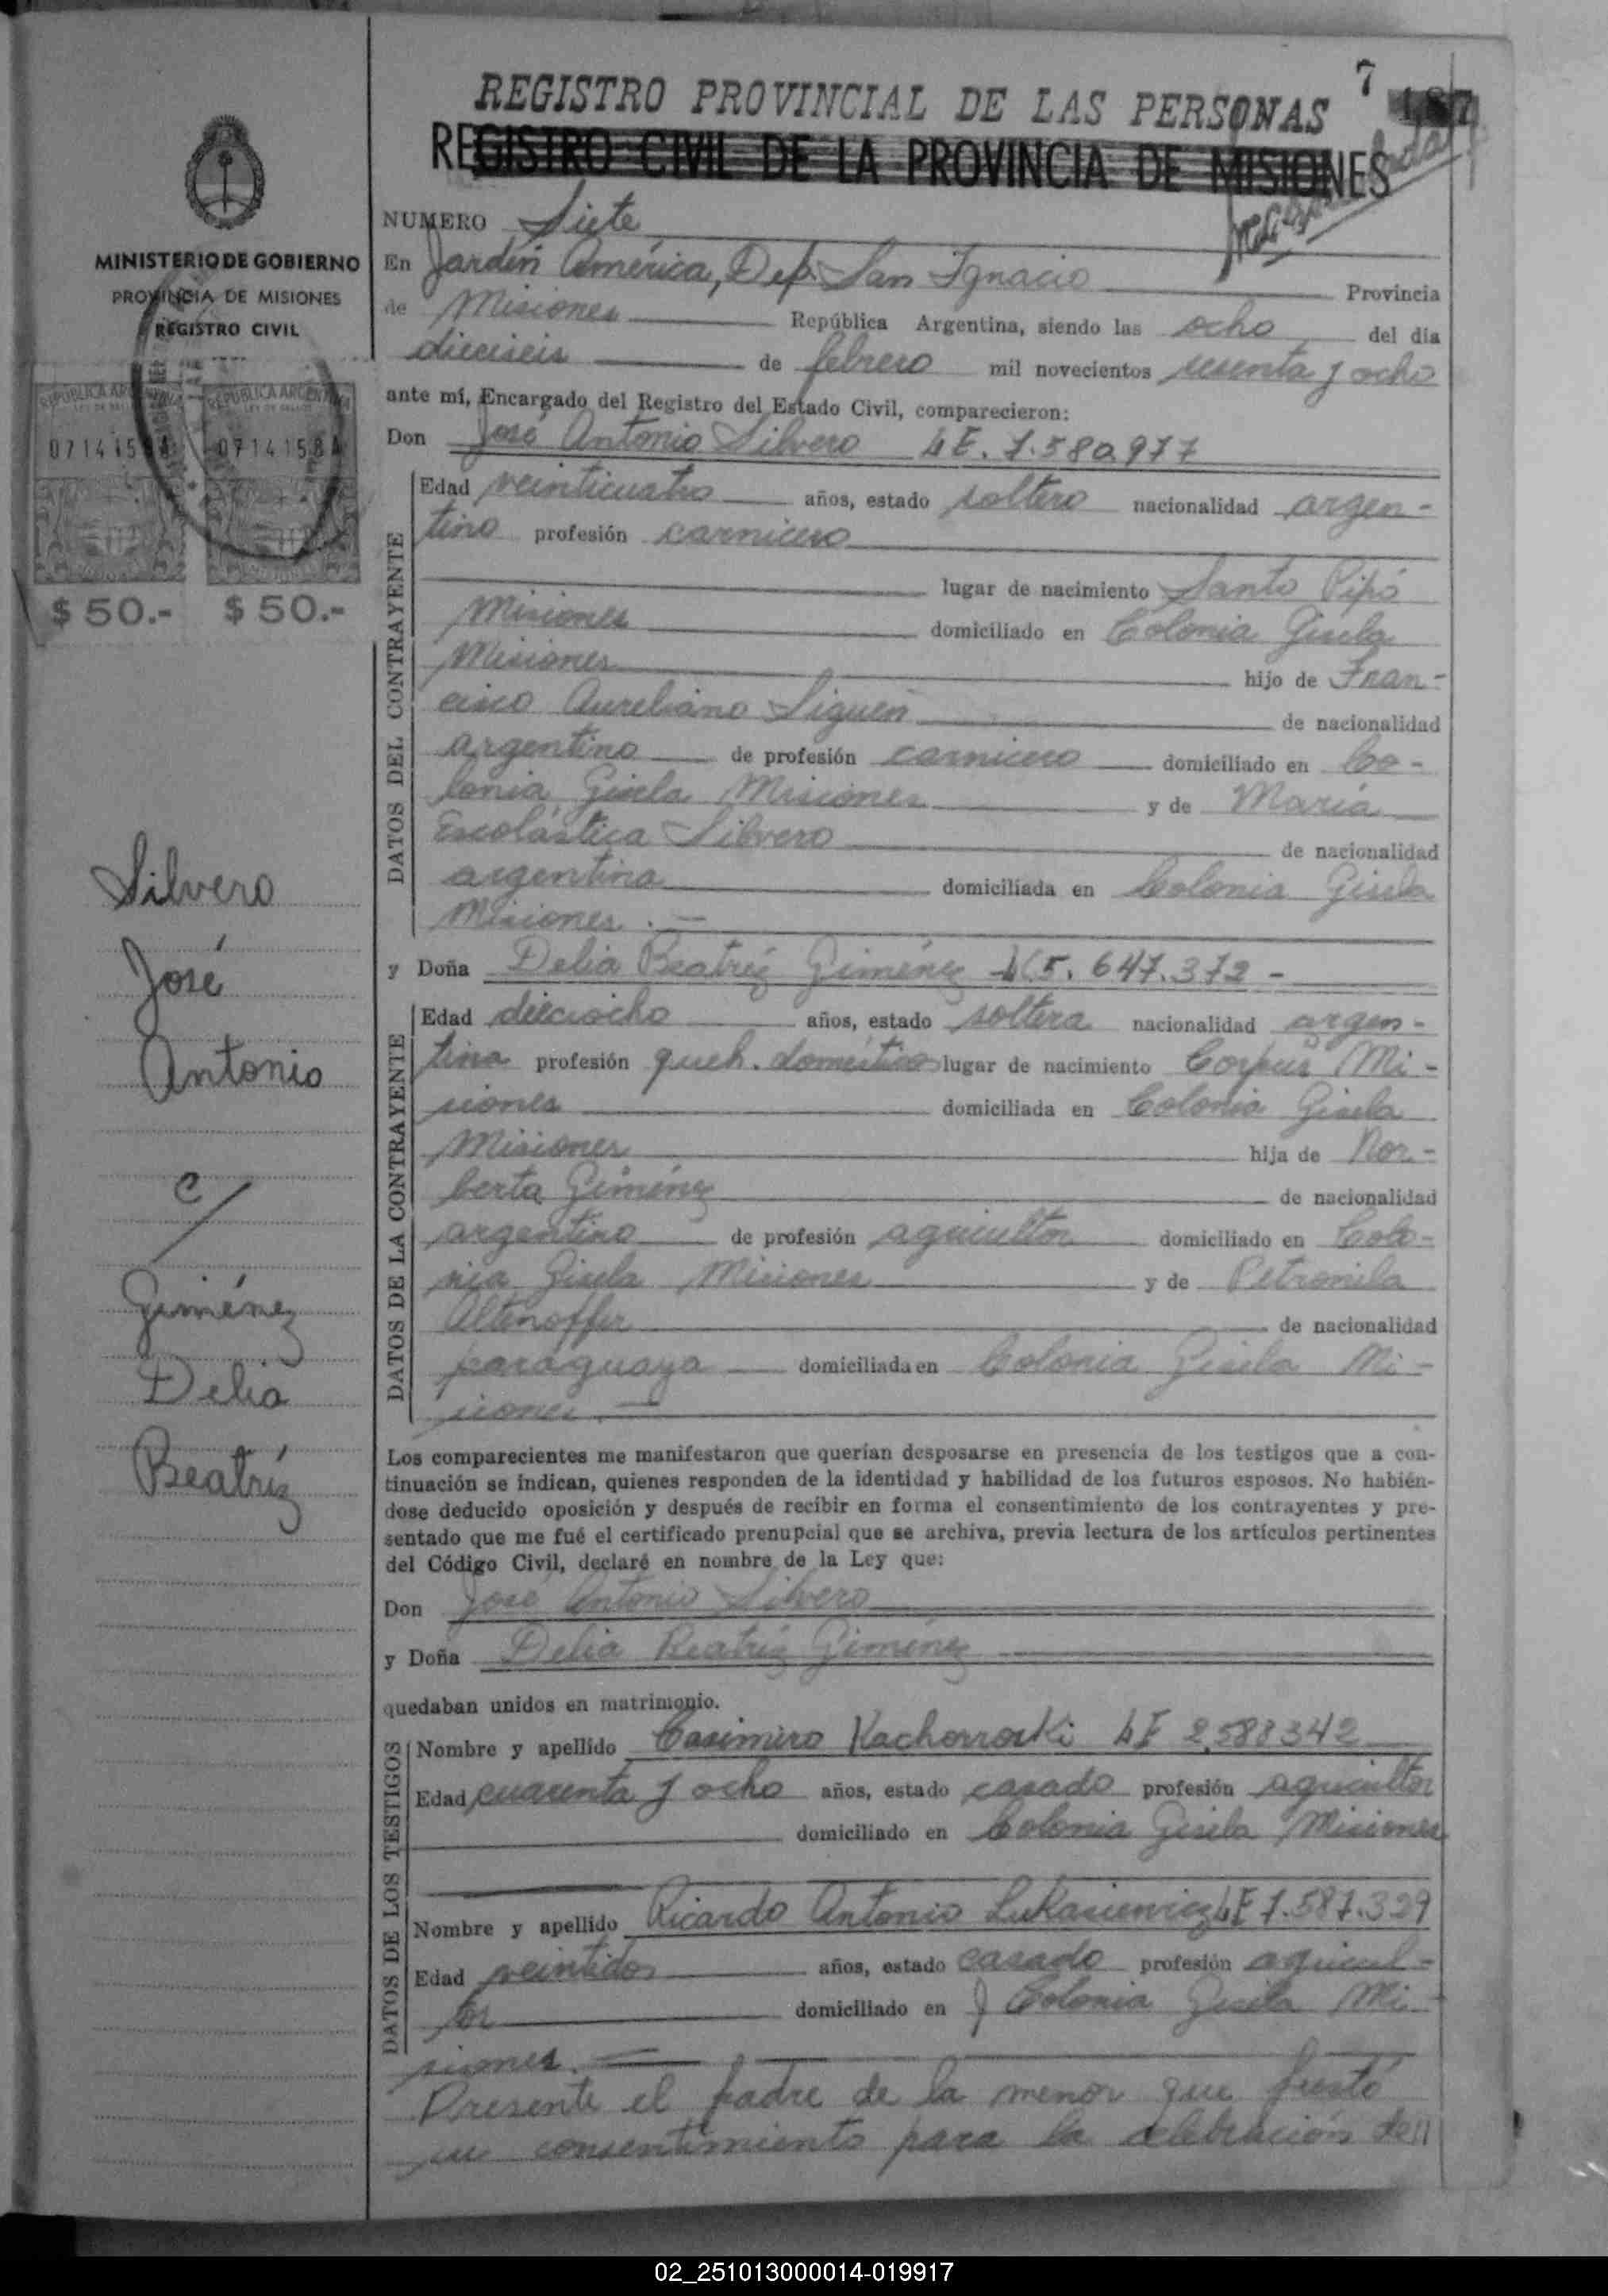 7
REGISTRO PROVINCIAL DE LAS PERSONAS
REGISTRO CIVIL DE LA PROVINCIA DE MISIONES
MINISTERIO DE GOBIERNO
PROVINCIA DE MISIONES
REGISTRO CIVIL
REPUBLICA ARGENTINA REPUBLICA ARGENTINA
LEY DE SELLOS LEY DE SELLOS
0714158A 0714158A
$50.- $50.-
Silvero
José
Antonio
c/
Giménez
Delia
Beatríz
NUMERO Siete
En Jardín América, Dep. San Ignacio Provincia
de Misiones República Argentina, siendo las ocho del día
dieciseis de febrero mil novecientos sesenta y ocho
ante mí, Encargado del Registro del Estado Civil, comparecieron:
Don José Antonio Silvero LE. 7.580.977
DATOS DEL CONTRAYENTE
Edad veinticuatro años, estado soltero nacionalidad argen-
tino profesión carnicero
lugar de nacimiento Santo Pipó
Misiones domiciliado en Colonia Gisela
Misiones hijo de Fran-
cisco Aureliano Siguen de nacionalidad
argentino de profesión carnicero domiciliado en Co-
lonia Gisela Misiones y de María
Escolástica Silvero de nacionalidad
argentina domiciliada en Colonia Gisela
Misiones.—
y Doña Delia Beatríz Giménez LC 5.647.372 -
DATOS DE LA CONTRAYENTE
Edad dieciocho años, estado soltera nacionalidad argen-
tina profesión queh. doméstico lugar de nacimiento Corpus Mi-
siones domiciliada en Colonia Gisela
Misiones hija de Nor-
berto Giménez de nacionalidad
argentino de profesión agricultor domiciliado en Colo-
nia Gisela Misiones y de Petronila
Altenoffer de nacionalidad
paraguaya domiciliada en Colonia Gisela Mi-
siones.—
Los comparecientes me manifestaron que querían desposarse en presencia de los testigos que a con-
tinuación se indican, quienes responden de la identidad y habilidad de los futuros esposos. No habién-
dose deducido oposición y después de recibir en forma el consentimiento de los contrayentes y pre-
sentado que me fué el certificado prenupcial que se archiva, previa lectura de los artículos pertinentes
del Código Civil, declaré en nombre de la Ley que:
Don José Antonio Silvero
y Doña Delia Beatríz Giménez
quedaban unidos en matrimonio.
DATOS DE LOS TESTIGOS
Nombre y apellido Casimiro Kachorroski LE 2.588342
Edad cuarenta y ocho años, estado casado profesión agricultor
domiciliado en Colonia Gisela Misiones
Nombre y apellido Ricardo Antonio Lukasiewicz LE 7.587.329
Edad veintidos años, estado casado profesión agricul-
tor domiciliado en Colonia Gisela Mi-
siones.
Presente el padre de la menor que prestó
su consentimiento para la celebración de //
02_251013000014-019917